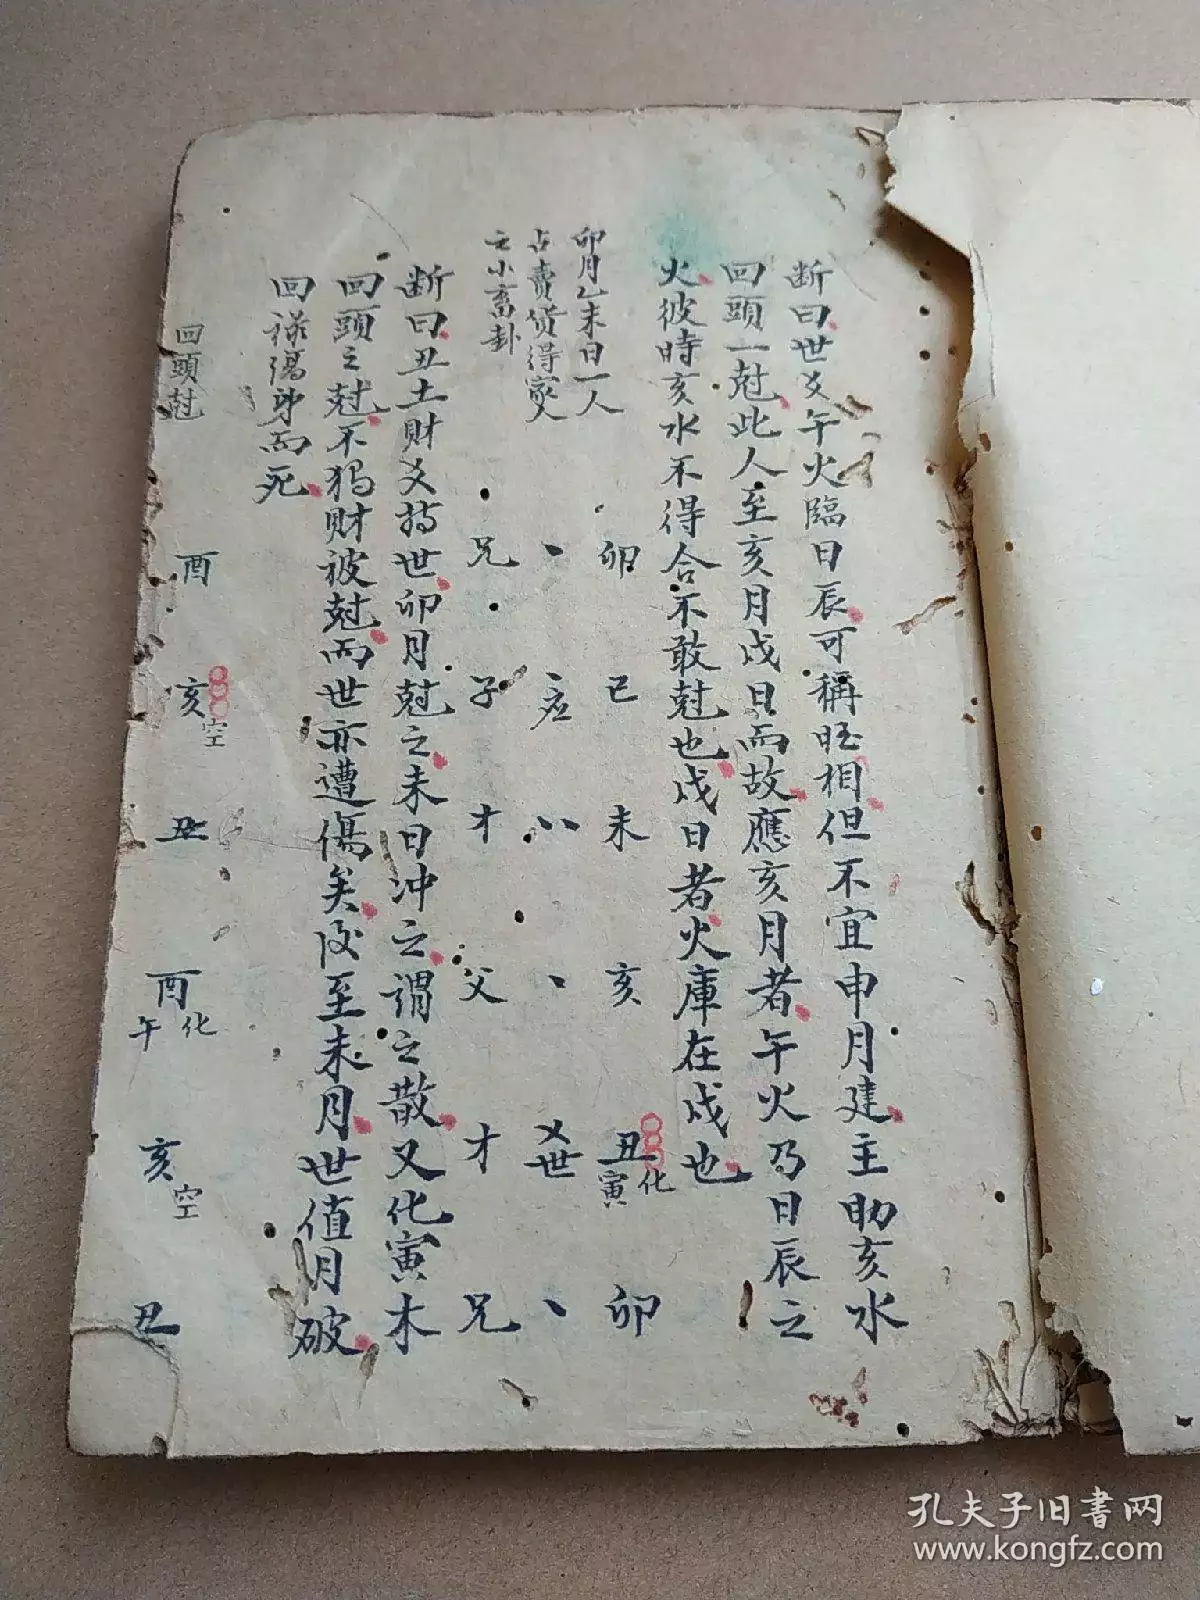 断曰世爻午火臨日辰可稱旺相但不宜申月建主助亥水
回頭一尅此人至亥月戌日而故應亥月者午火乃日辰之
火彼時亥水不得合不敢尅也戌日者火庫在戌也
卯月乙未日一人
占賣貨得家人
之小畜卦
卯 巳 未 亥 丑 化寅 卯
丶 應 丶丶 丶 乂世 丶
兄 子 才 父 才 兄
断曰丑土財爻持世卯月尅之未日冲之謂之散又化寅木
回頭之尅不獨財被尅而世亦遭傷矣後至未月世值月破
回祿傷身而死
回頭尅
酉 亥 空 丑 酉 化午 亥 空 丑
孔夫子旧书网
www.kongfz.com